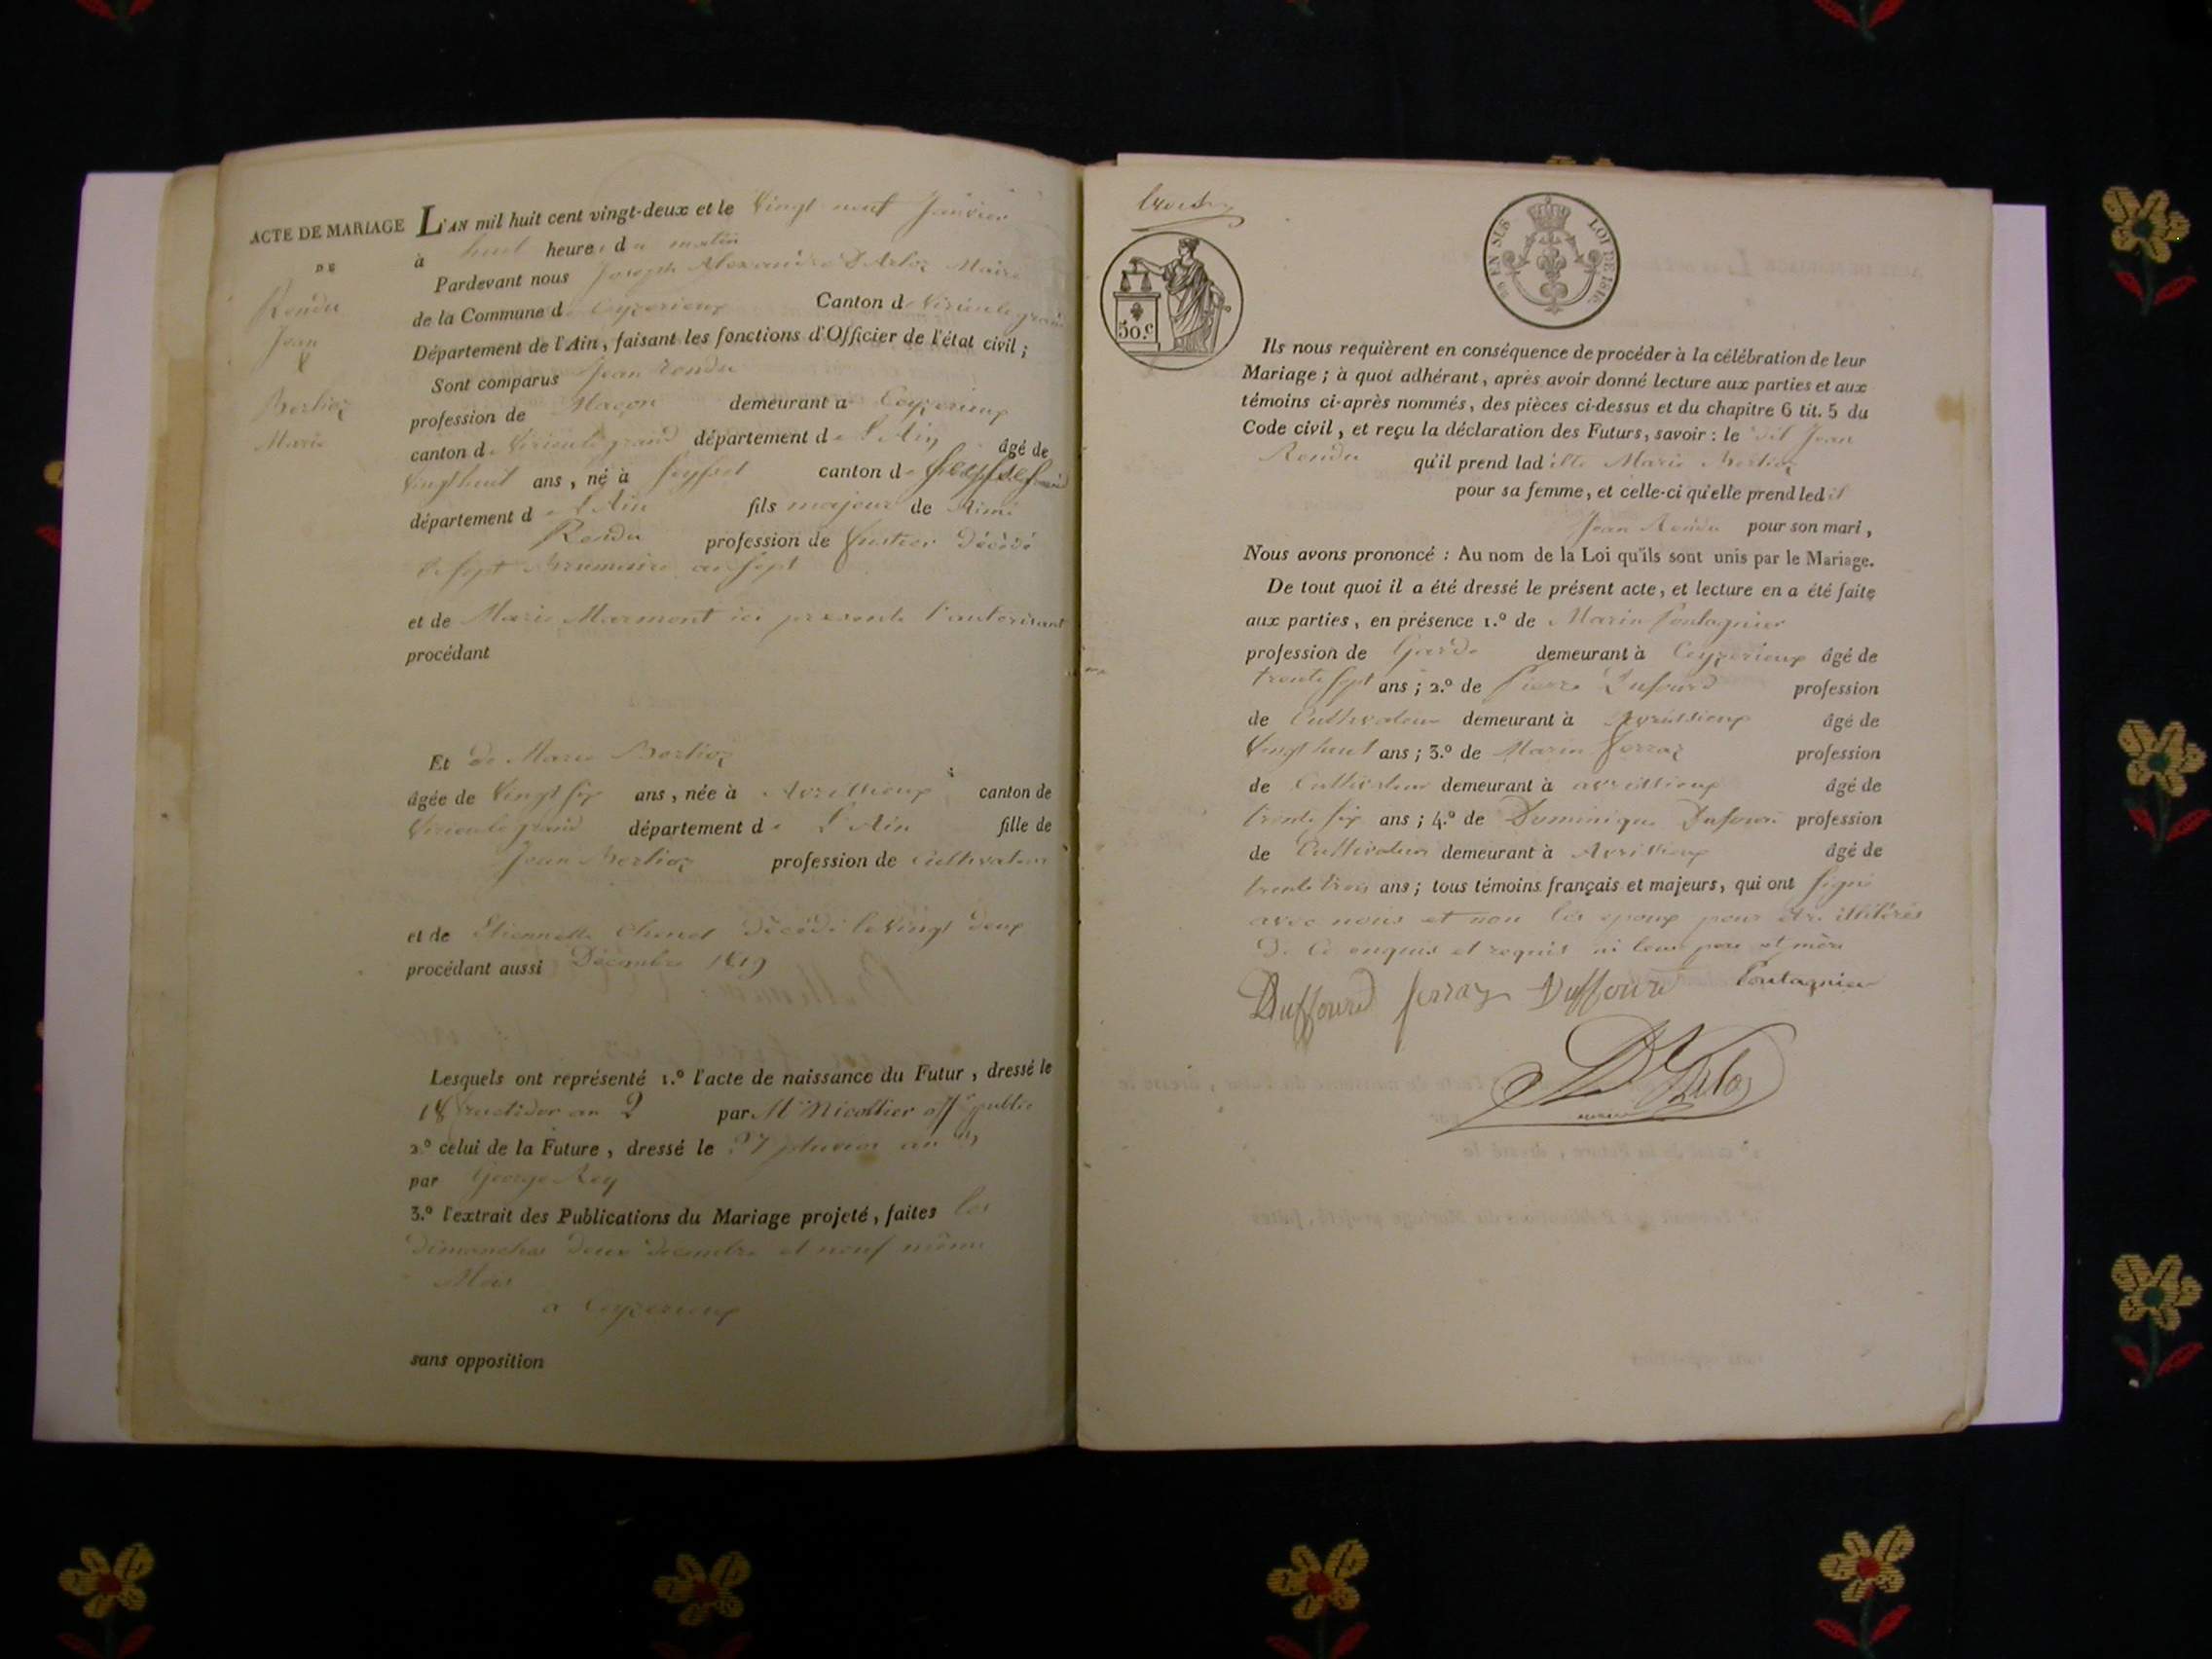 ACTE DE MARIAGE
DE
Rendu
Jean
&
Berlioz
Marie
L'AN mil huit cent vingt-deux et le Vingt neuf Janvier
à huit heures du matin
Pardevant nous Joseph Alexandre D'Arloz Maire
de la Commune de Ceyzerieux Canton de Virieulegrand
Département de l'Ain, faisant les fonctions d'Officier de l'état civil;
Sont comparus Jean Rendu
profession de Maçon demeurant a Ceyzerieux
canton de Virieulegrand département de L'Ain âgé de
Vingthuit ans, né à Seyssel canton de
département de L'Ain fils majeur de Aimé
Rendu profession de décédé
le sept Brumaire an sept
et de Marie Marmont ici presente l'autorisant
procédant
Et de Marie Berlioz
âgée de Vingt six ans, née à Avrissieux canton de
Virieulegrand département de L'Ain fille de
Jean Berlioz profession de Cultivateur
et de Etiennette décédé le Vingt deux
procédant aussi Décembre 1819
Lesquels ont représenté 1.° l'acte de naissance du Futur, dressé le
18 fructidor an 2 par Mr Nicollier off public
2.° celui de la Future, dressé le 27 pluviose an
par George Rey
3.° l'extrait des Publications du Mariage projeté, faites les
dimanches deux decembre et neuf même
Mois
a Ceyzerieux
sans opposition
50.c
EN SUS
LOI DE 1816
Ils nous requièrent en conséquence de procéder à la célébration de leur
Mariage; à quoi adhérant, après avoir donné lecture aux parties et aux
témoins ci-après nommés, des pièces ci-dessus et du chapitre 6 tit. 5 du
Code civil, et reçu la déclaration des Futurs, savoir: le dit Jean
Rendu qu'il prend ladite Marie Berlioz
pour sa femme, et celle-ci qu'elle prend ledit
Jean Rendu pour son mari,
Nous avons prononcé: Au nom de la Loi qu'ils sont unis par le Mariage.
De tout quoi il a été dressé le présent acte, et lecture en a été faite
aux parties, en présence 1.° de Marin Pontagnier
profession de Garde demeurant à Ceyzerieux âgé de
trente sept ans; 2.° de Pierre Dufourd profession
de Cultivateur demeurant à Avrissieux âgé de
Vingt huit ans; 3.° de Marin Ferraz profession
de Cultivateur demeurant à avrissieux âgé de
trente six ans; 4.° de Dominique Dufour profession
de Cultivateur demeurant à Avrissieux âgé de
trente trois ans; tous témoins français et majeurs, qui ont signé
avec nous et non les epoux pour être illitérés
de ce enquis et requis ni leur pere et mère
Duffourd ferraz Duffourd Pontagnier
D'Arloz